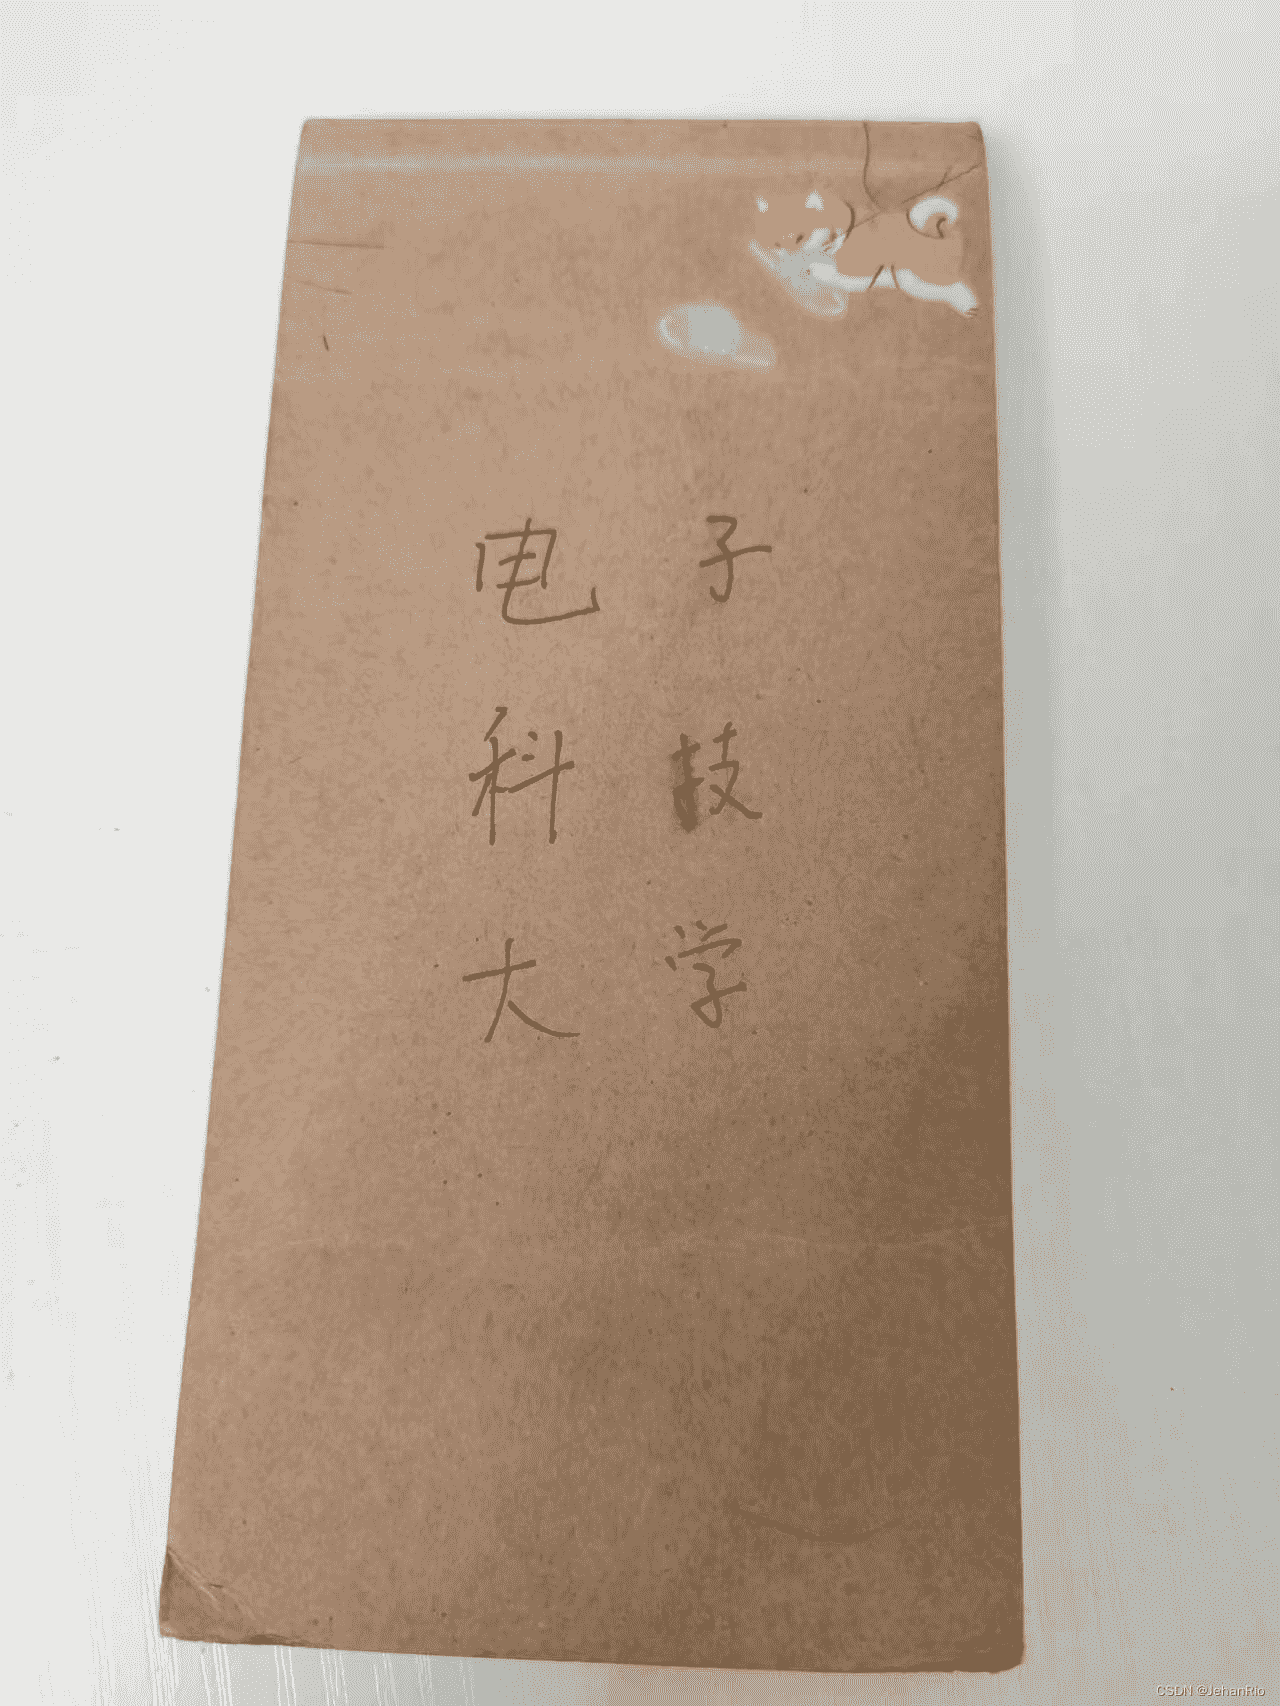 电子
科技
大学
CSDN @JehanRio